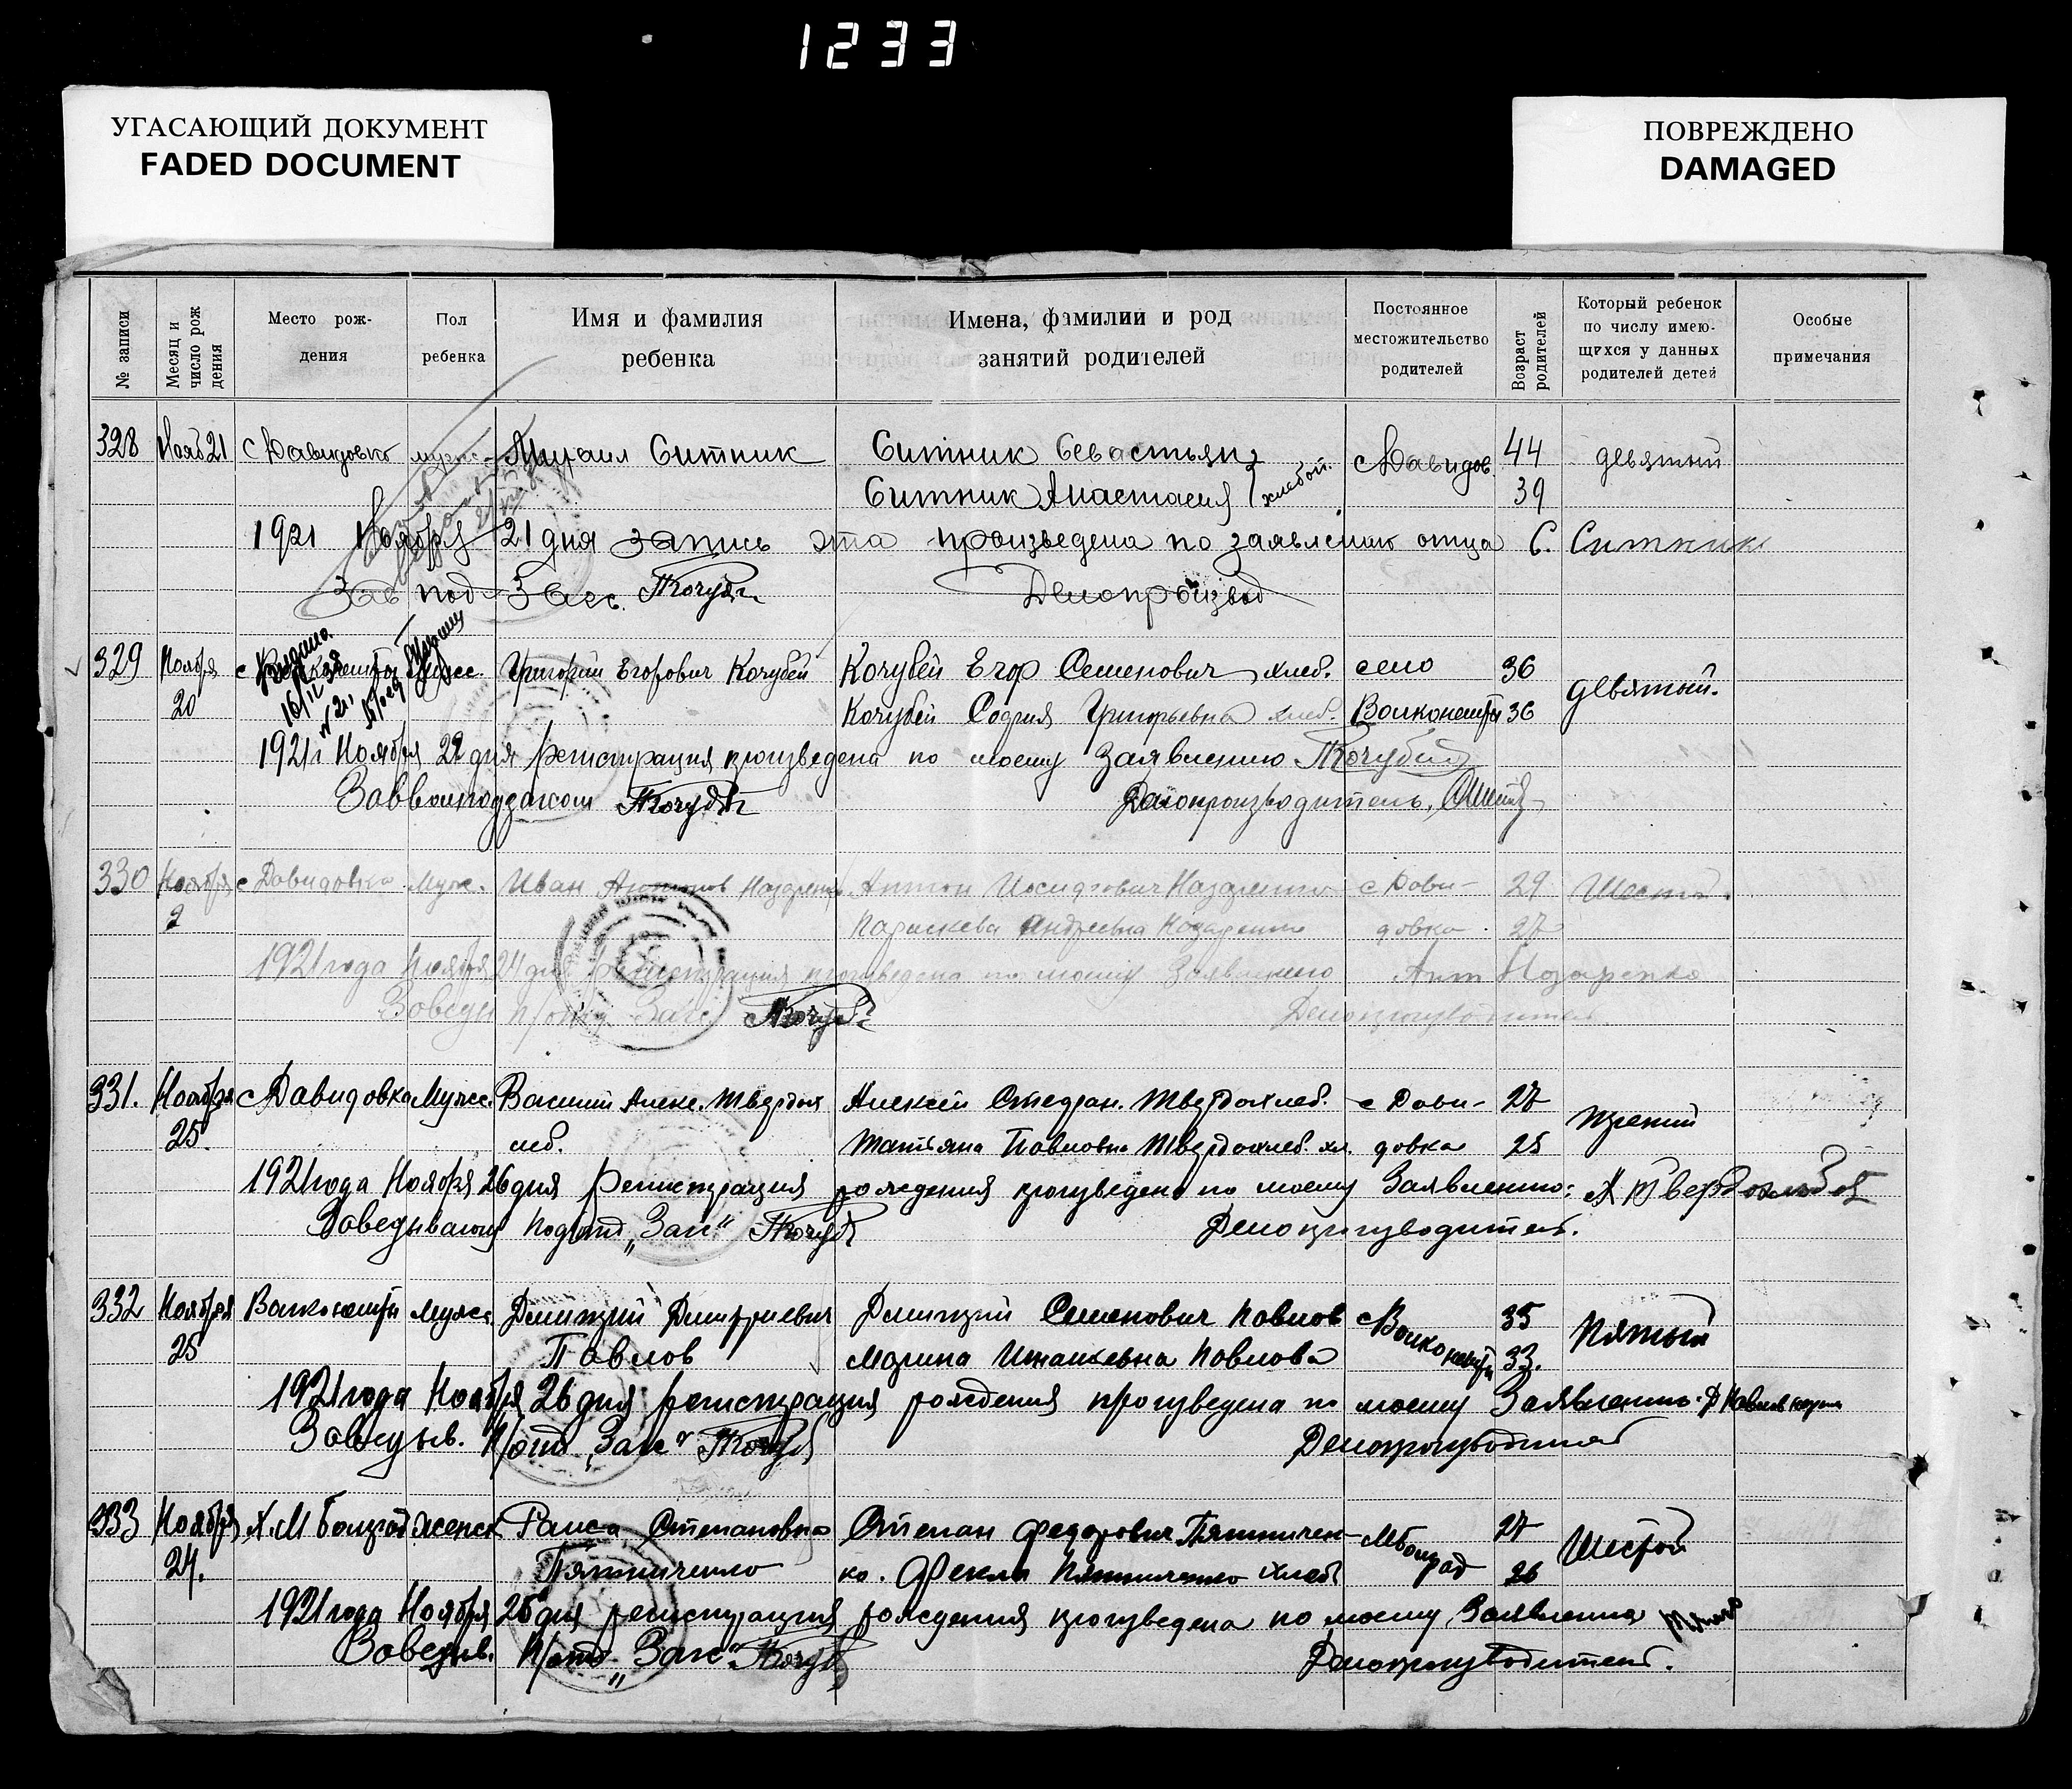 1233
УГАСАЮЩИЙ ДОКУМЕНТ
FADED DOCUMENT
ПОВРЕЖДЕНО
DAMAGED
№ записи
Месяц и число рож дения
Место рож-
дения
Пол
ребенка
Имя и фамилия
ребенка
Имена, фамилии и род
занятий родителей
Постоянное
местожительство
родителей
Возраст родителей
Который ребенок
по числу имею-
щихся у данных
родителей детей
Особые
примечания
328 Нояб 21 с Давидовко Михаил Ситник Ситник Севастьян с Давидов. 44 девятый
Ситник Анастасия хлебоп. 39
1921 Ноября 21 дня запись эта произведена по заявлению отца С. Ситник
Зав под Загс. Кочубей Делопроизвод
329 Ноября Григорий Егорович Кочубей Кочубей Егор Семенович хлеб. село 36 девятый.
20 Кочубей София Григорьевна хлеб. 36
Выдана
16/II
1921 г Ноября 22 дня регистрация произведена по моему Заявлению Кочубей
Кочубей Делопроизводитель.
330 Ноября с Давидовка Муж. Иван Антонов Назаренко Антон Иосифович Назаренко с Дави- 29 Шестой.
2 Параскева Андреевна Назаренко довка. 27
1921 года Ноября 24 дня регистрация произведена по моему Заявлению Ант Назаренко
Заведы П/отд. Загс. Кочубей Делопроизводитель
331. Ноября с Давидовка Мужс. Василий Алекс. Твердох Алексей Стефан. Твердохлеб. с Дави- 27 третий
25. леб. Татьяна Павловна Твердохлеб. хл. довка 25
1921 года Ноября 26 дня Регистрация рождения произведена по моему Заявлению: А Твердохлеб
Заведывающ Подотд „Загс" Кочуб Делопроизводитель.
332 Ноября мужс. Дмитрий Дмитриевич Дмитрий Семенович Павлов с 35 Пятый
25 Павлов Марина Павлова 33.
1921 года Ноября 26 дня регистрация рождения произведена по моему Заявлению.
Заведыв. П/отд „Загс" Кочуб Делопроизводитель
333 Ноября Женск Раиса Степановна Степан Федорович Пятничен- 27 Шестой
24. Пятниченко ко. Фекла Пятниченко хлеб 26
1921 года Ноября 26 дня регистрация рождения произведена по моему Заявлению
Заведыв. П/отд „Загс" Кочуб Делопроизводитель.